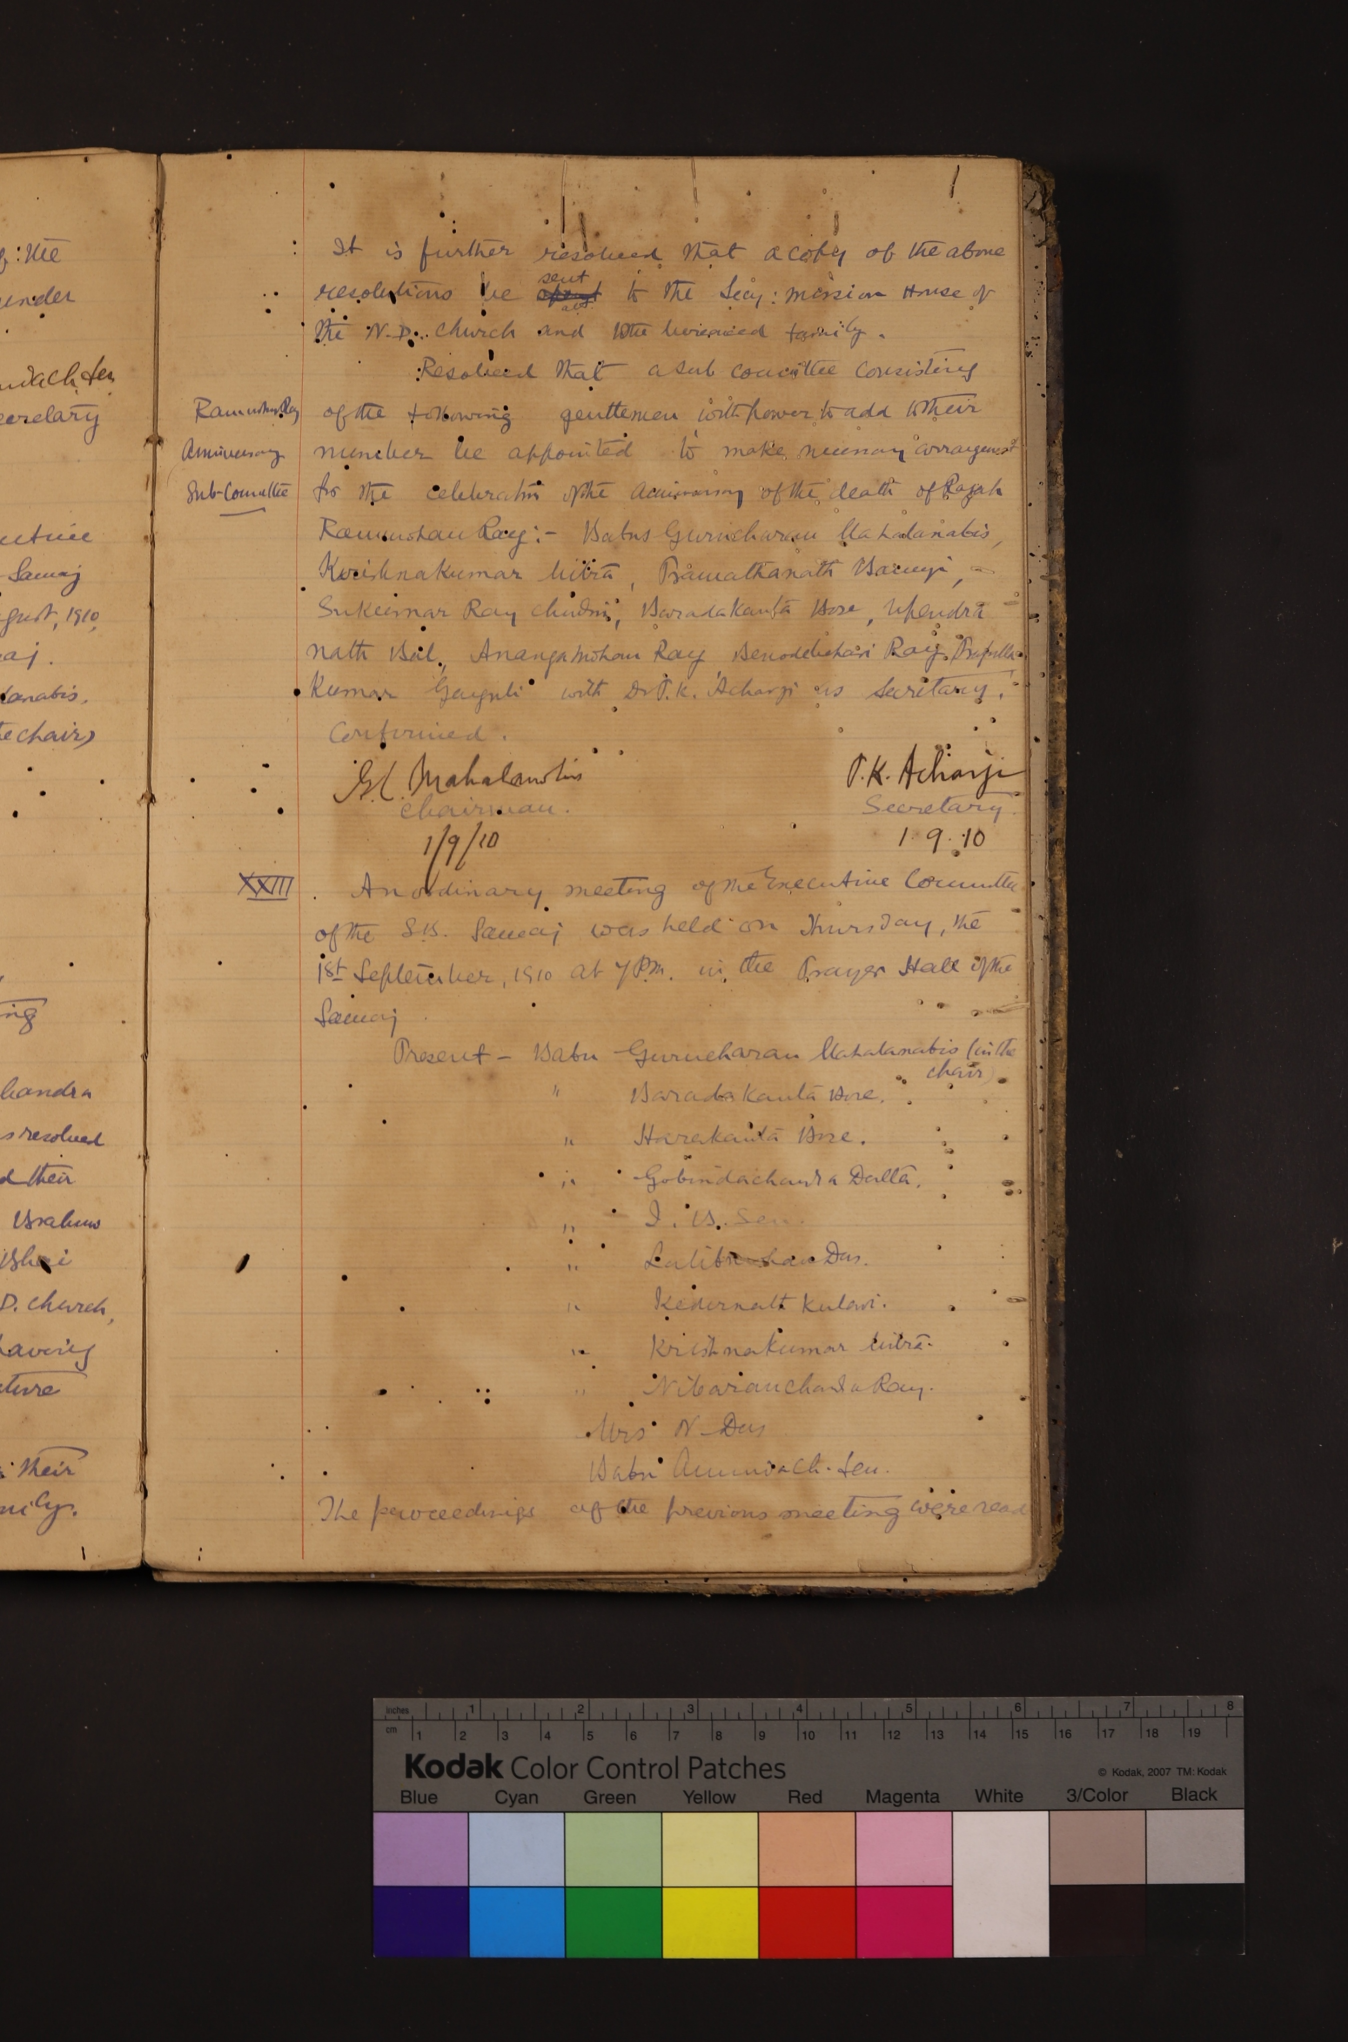 g: the
under
Sen
ecretary
Samaj
gust, 1910,
aj.
lanabis.
e chair)
ing
handra
s resolved
d their
Brahmo
D. church,
having
ture
their
mily.
It is further resolved that a copy of the above
sent
resolutions be to the Secy: mission House of
the N.D. church and to the bereaved family.
Resolved that a sub committee consisting
Rammohun Ray of the following gentlemen with power to add to their
Anniversary number be appointed to make necessary arrangement
Sub-Committee for the celebration of the anniversary of the death of Rajah
Rammohan Ray:- Babus Gurucharan Mahalanabis,
Krishnakumar Mitra, Pramathanath Banerji,
Sukumar Ray Chudri, Baradakanta Bose, Upendra
nath Bal, Ananga Mohan Ray Benodebehari Ray, Prafulla
Kumar Ganguli with Dr P.K. Acharji as Secretary.
Confirmed.
G.C. Mahalanobis P.K. Acharji
Chairman. Secretary
1/9/10 1.9.10
XXIII An ordinary meeting of the Executive Committee
of the S.B. Samaj was held on Thursday, the
1st September, 1910 at 7 P.M. in the Prayer Hall of the
Samaj.
Present - Babu Gurucharan Mahalanabis (in the
chair)
" Baradakanta Bose.
" Harakanta Bose.
" Gobindachandra Datta.
" I. B. Sen.
" Lalitmohan Das.
" Kedernath Kulavi.
" Krishnakumar Mitra.
" Nibaranchandra Ray.
Mrs N. Das
Babu Annodach. Sen.
The proceedings of the previous meeting were read
inches 1 2 3 4 5 6 7 8
cm 1 2 3 4 5 6 7 8 9 10 11 12 13 14 15 16 17 18 19
Kodak Color Control Patches © Kodak, 2007 TM: Kodak
Blue Cyan Green Yellow Red Magenta White 3/Color Black